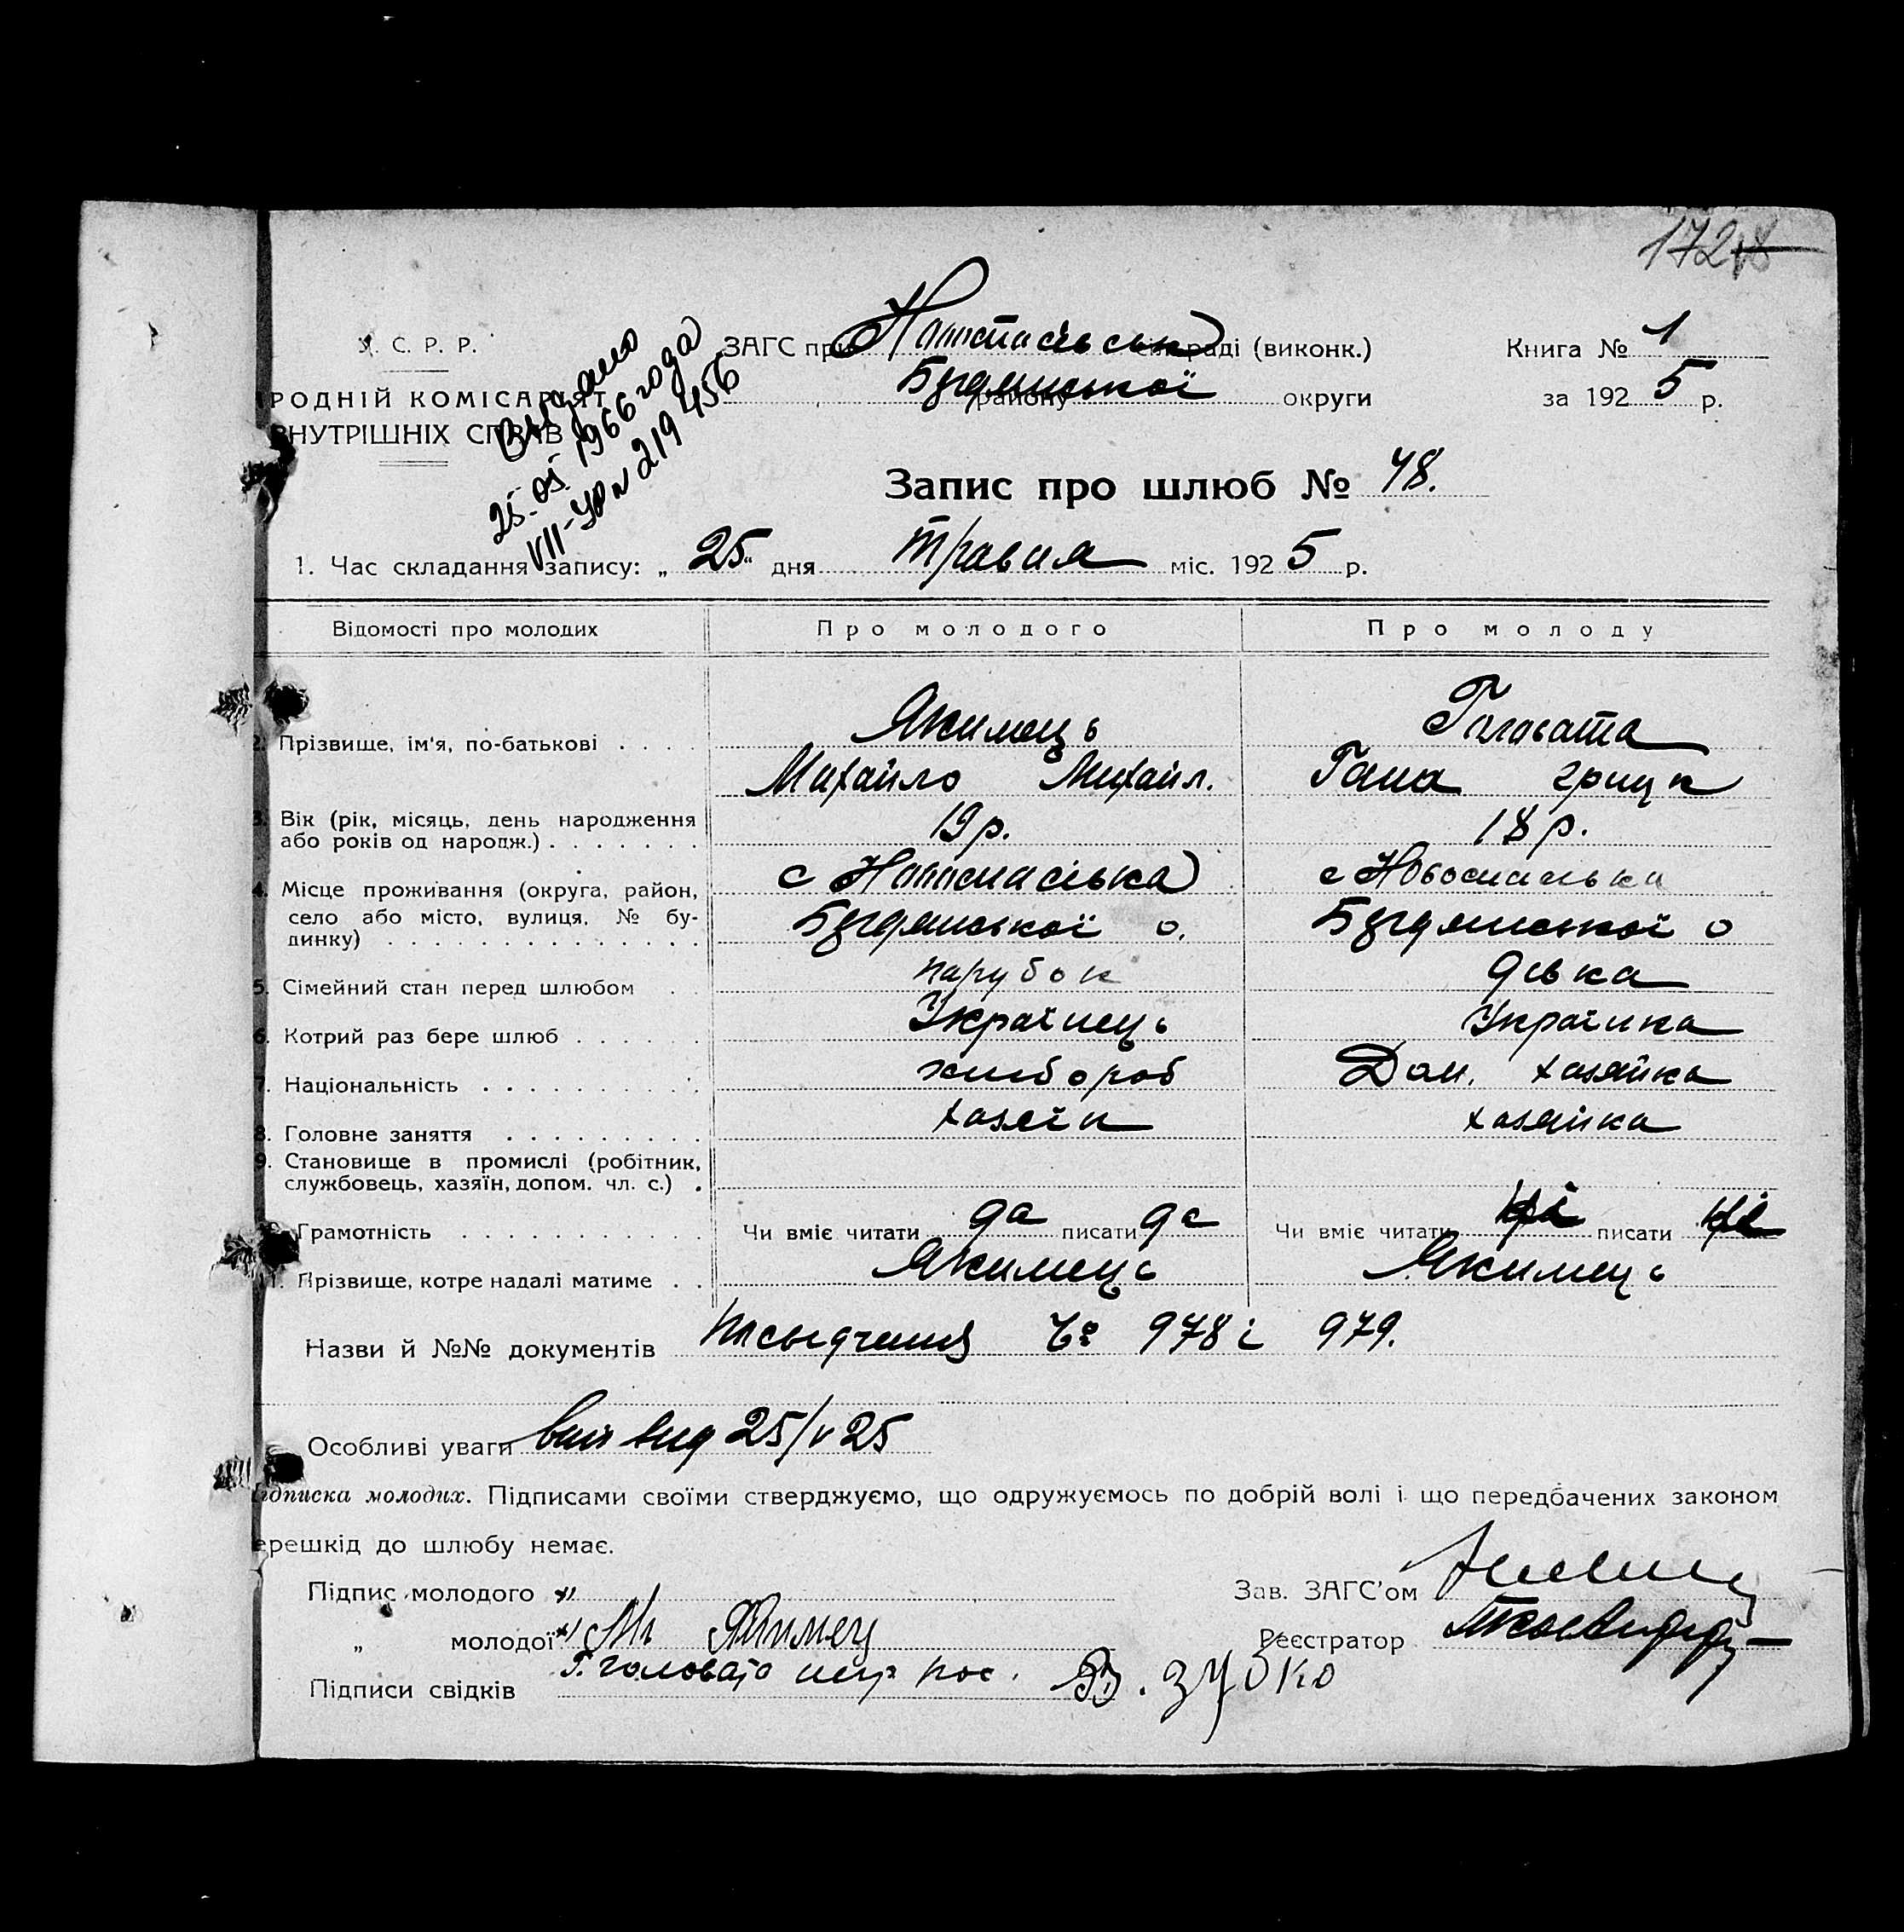 172
У. С. Р. Р.
РОДНІЙ КОМІСАРІЯТ
ВНУТРІШНІХ СПРАВ
Выдано
25.05.1966 года
VII-ЖР № 219456
ЗАГС при Новоспасівськ раді (виконк.)
району Бердянської округи
Книга № 1
за 1925 р.
Запис про шлюб № 48.
1. Час складання запису: „25“ дня травня міс. 1925 р.
Відомості про молодих Про молодого Про молоду
2. Прізвище, ім'я, по-батькові . . . . Якимець Головата
Михайло Михайл. Гана Грицк
3. Вік (рік, місяць, день народження 19 р. 18 р.
або років од народж.) . . . . . . .
4. Місце проживання (округа, район, с Новоспасівка с Новоспасівка
село або місто, вулиця, № бу- Бердянської о. Бердянської о
динку) . . . . . . . . . . . . . .
5. Сімейний стан перед шлюбом . парубок дівка
6. Котрий раз бере шлюб . . . . . . Українець Українка
7. Національність . . . . . . . . . . хлибороб Дом. хазяйка
8. Головне заняття . . . . . . . . . хазяїн хазяйка
9. Становище в промислі (робітник,
службовець, хазяїн, допом. чл. с.) .
Грамотність . . . . . . . . . . . Чи вміє читати да писати да Чи вміє читати ні писати ні
1. Прізвище, котре надалі матиме . . Якимець Якимець
Назви й №№ документів посвідчення № 978 і 979.
Особливі уваги вид 25/V 25
ідписка молодих. Підписами своїми стверджуємо, що одружуємось по добрій волі і що передбачених законом
ерешкід до шлюбу немає.
Підпис молодого
Зав. ЗАГС'ом
„ молодої М Якимец
Реєстратор
Г. Головата
Підписи свідків В. Зубко